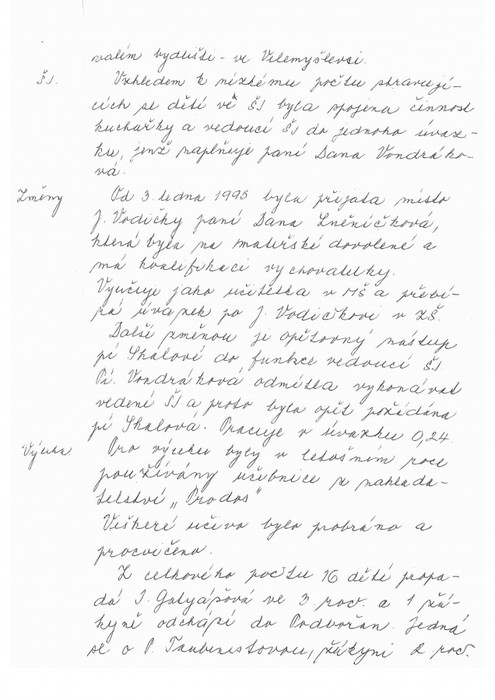 valém bydlišti - ve Vilemyšlevsi.
ŠJ. Vzhledem k nízkému počtu stravují-
cích se dětí ve ŠJ byla spojena činnost
kuchařky a vedoucí ŠJ do jednoho úvaz-
ku, jenž naplňuje paní Dana Vondráko-
vá.
Změny Od 3. ledna 1995 byla přijata místo
J. Vodičky paní Dana Lněničková,
která byla na mateřské dovolené a
má kvalifikaci vychovatelky.
Vyučuje jako učitelka v MŠ a přebí-
rá úvazek po J. Vodičkovi v ZŠ.
Další změnou je opětovný nástup
pí Skalové do funkce vedoucí ŠJ
Pí. Vondráková odmítla vykonávat
vedení ŠJ a proto byla opět požádána
pí Skalová. Pracuje v úvazku 0,24.
Výuka Pro výuku byly v letošním roce
používány učebnice z naklada-
telství „Prodos"
Veškeré učivo bylo probráno a
procvičeno.
Z celkového počtu 16 dětí propa-
dá J. ve 3. roč. a 1 žá-
kyně odchází do Podbořan. Jedná
se o P. Taubenestovou, žákyni 2 roč.